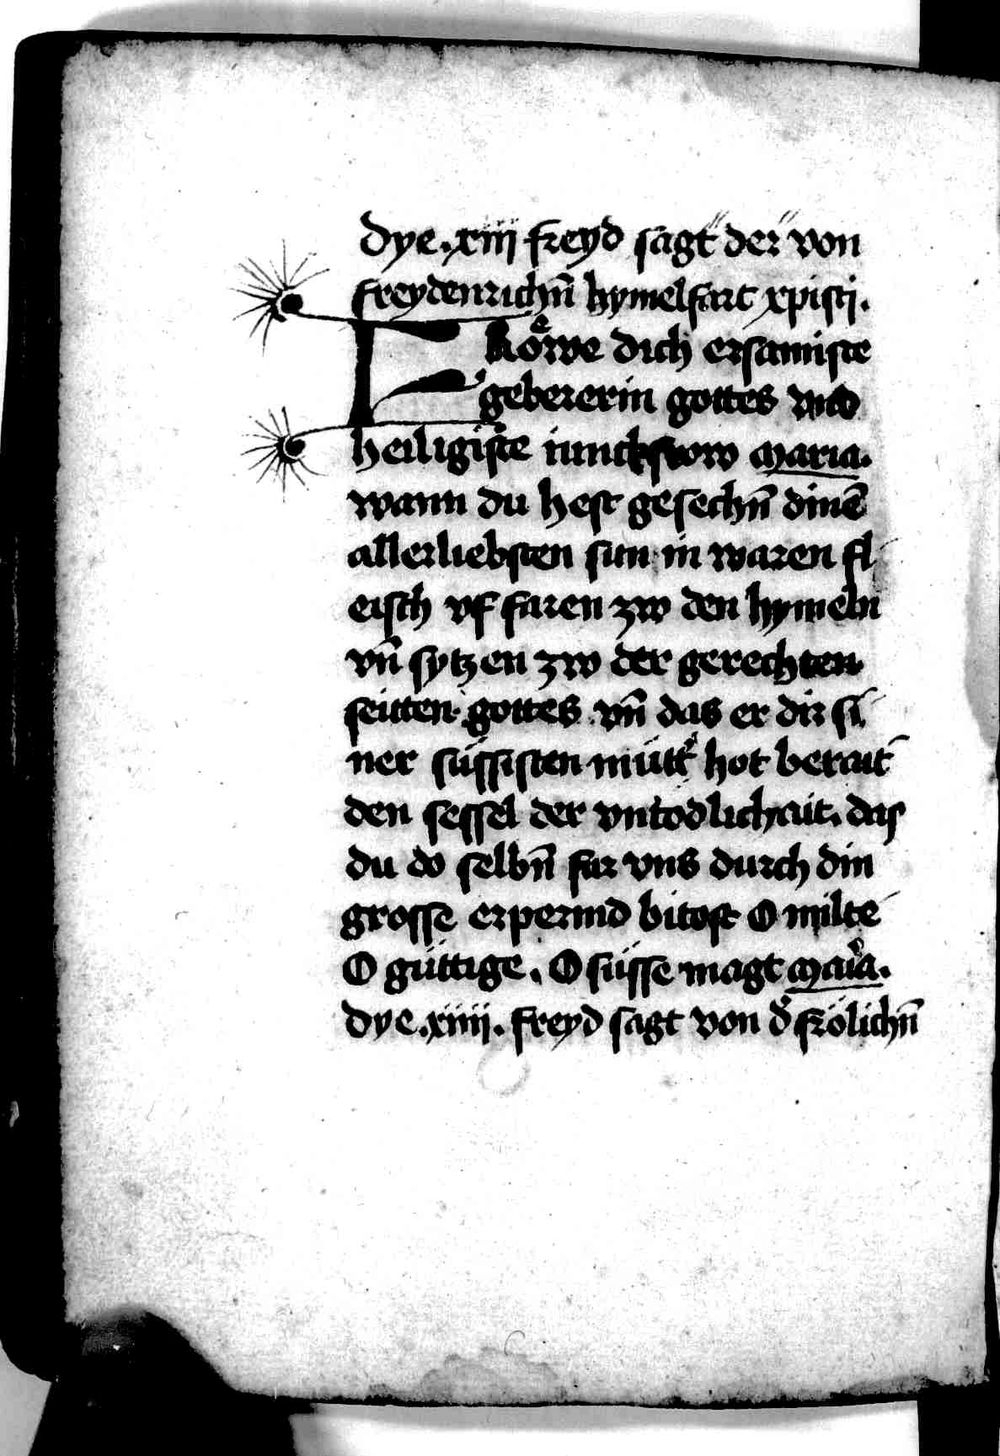 Dye .xiii freyd sagt der von
freydenrichn̄ hymelfart xpisti.
FRoͤwe dich ersamiste
gebererin gottes vnd
heiligiste iunckfrow maria.
wann du hest gesechn̄ dinē
allerliebsten sun in waren fl
eisch vf faren zw den hymeln
vn̄ sytzen zw der gerechten
seitten gottes vn̄ das er dir si
ner süssisten mütt' hot berait
den sessel der vntodlichait. das
du do selbn̄ far vns durch din
grosse erpermd bitost O milte
O güttige. O süsse magt maria.
dye .xiiii. freyd sagt von d' frölichn̄